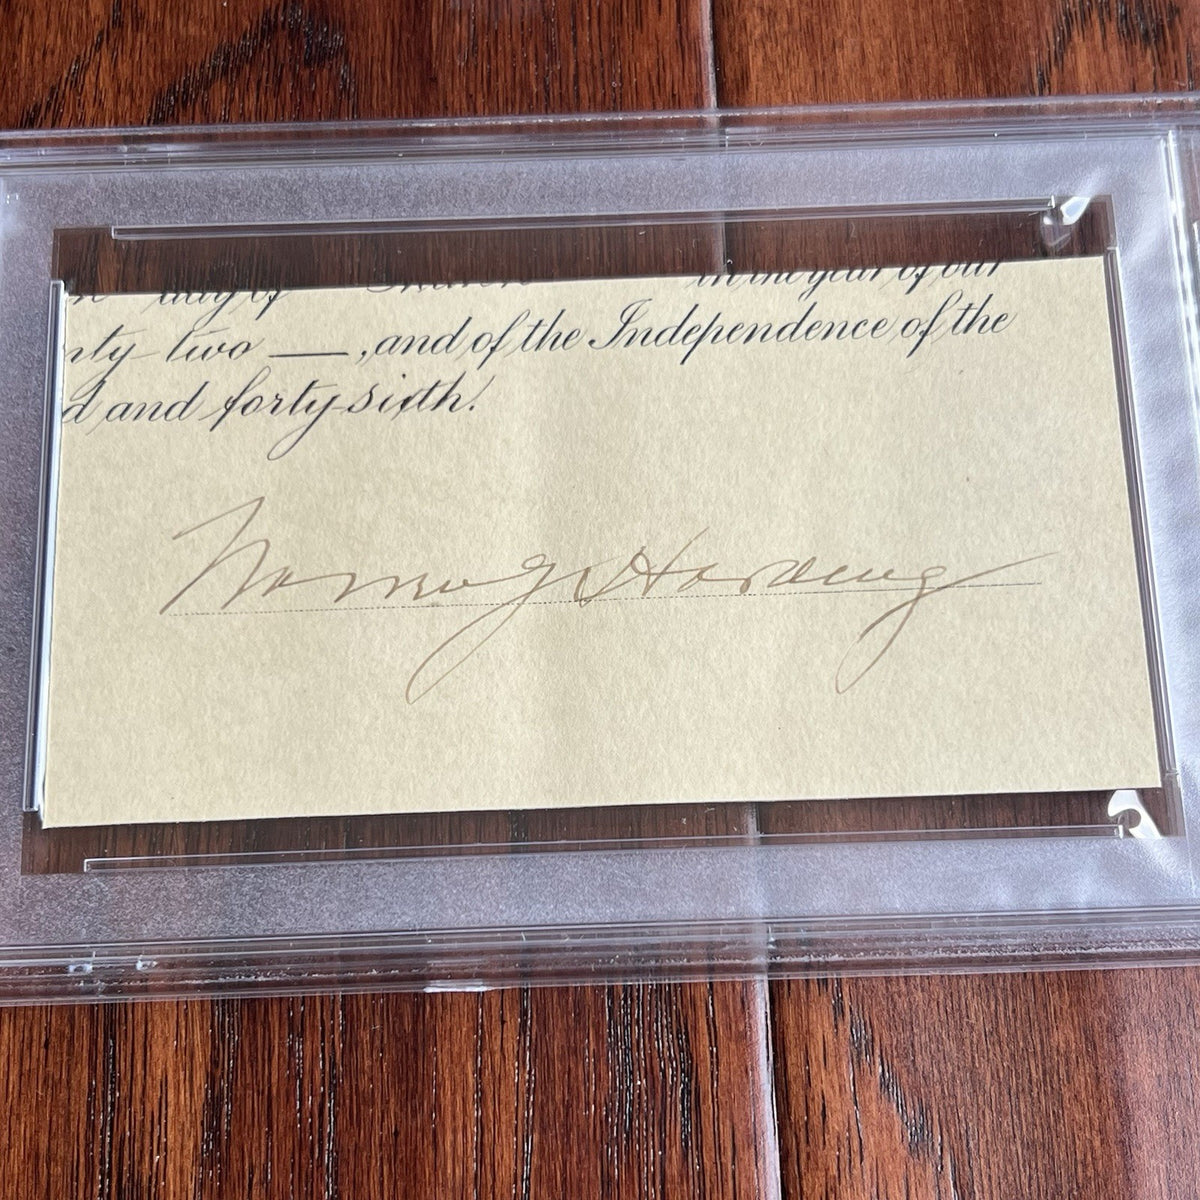 day of March in the year of our
nty-two —, and of the Independence of the
d and forty-sixth.
Warren G Harding